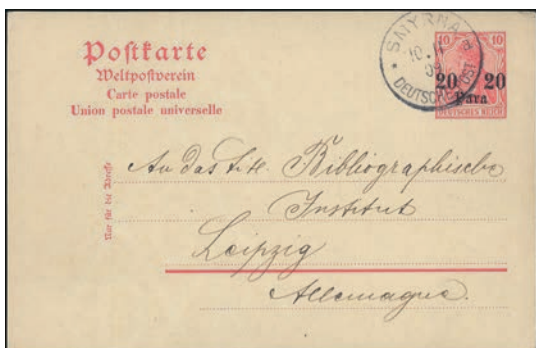 Postkarte
Weltpostverein
Carte postale
Union postale universelle
SMYRNA
10.11
a
DEUTSCHE POST
10 10
20 20
Para
DEUTSCHES REICH
Nur für die Adresse
An das Bibliographische
Institut
Leipzig
Allemagne.